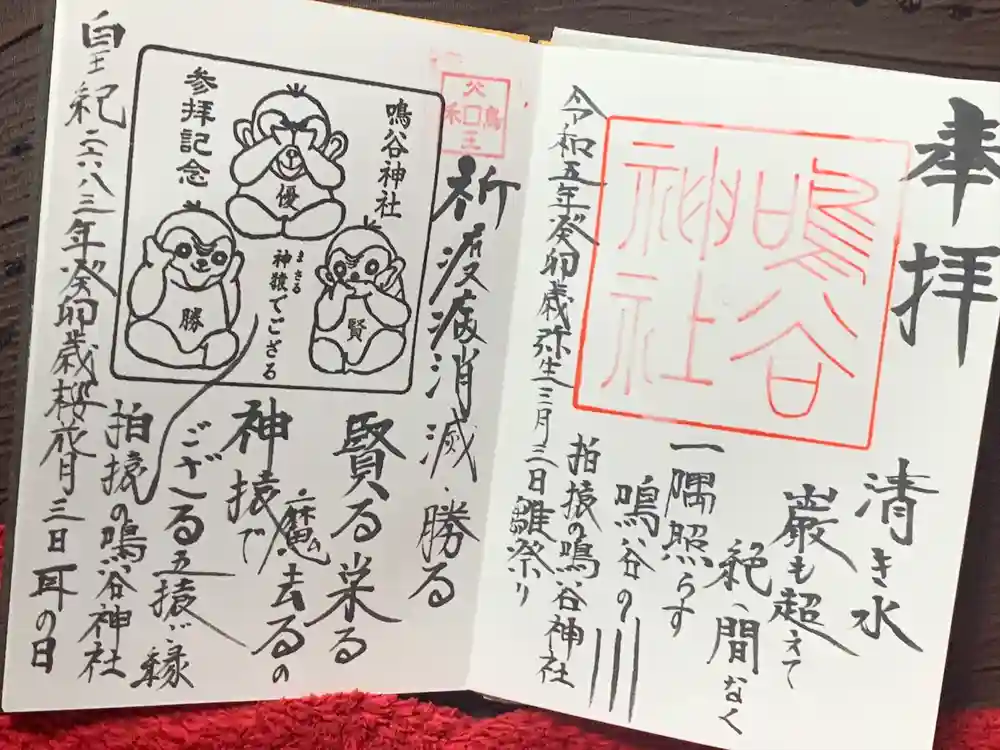 奉拝
鳴谷
神社
清き水
巌も超えて
絶へ間なく
一隅照らす
鳴谷の川
拍猿の鳴谷神社
令和五年癸卯歳弥生三月三日雛祭り
祈疫病消滅・勝る
賢る栄る
魔去るの
神猿で
ござる五猿ご縁
拍猿の鳴谷神社
皇紀二六八三年癸卯歳桜花月三日耳の日
鳴谷神社
参拝記念
優
勝
賢
まさる
神猿でござる